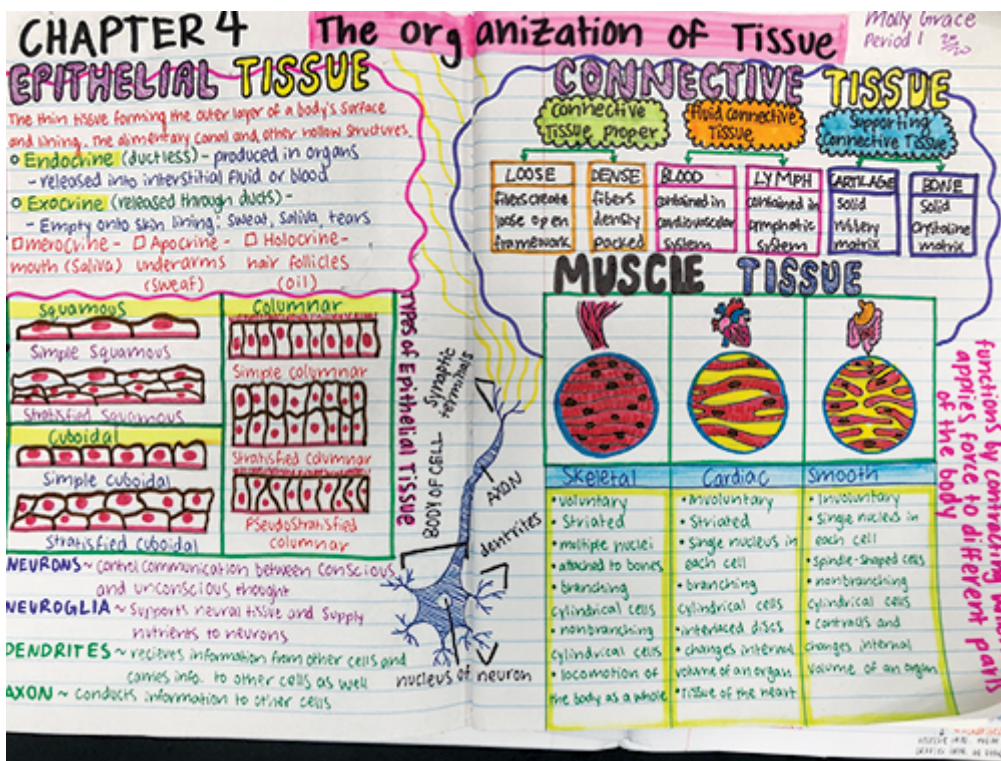 CHAPTER 4
The organization of Tissue
Molly Grace
Period 1
EPITHELIAL TISSUE
The thin tissue forming the outer layer of a body's surface
and lining. The alimentary canal and other hollow structures.
Endocrine (ductless) - produced in organs
- released into interstitial fluid or blood
Exocrine (released through ducts) -
- Empty onto skin lining, sweat, saliva, tears
merocrine - Apocrine - Holocrine -
mouth (saliva) underarms hair follicles
(sweat) (oil)
Squamous
Simple Squamous
Stratified Squamous
Cuboidal
Simple cuboidal
Stratified cuboidal
Columnar
Simple columnar
Stratified columnar
Pseudostratified
columnar
Types of Epithelial Tissue
NEURONS ~ control communication between conscious
and unconscious thought
NEUROGLIA ~ Supports neural tissue and supply
nutrients to neurons
DENDRITES ~ recieves information from other cells and
carries info. to other cells as well
AXON ~ conducts information to other cells
Synaptic
terminals
BODY OF CELL
AXON
dendrites
nucleus of neuron
CONNECTIVE TISSUE
Connective
Tissue proper
Fluid connective
Tissue
Supporting
Connective Tissue
LOOSE
fibers create
loose open
framework
DENSE
fibers
densly
packed
BLOOD
contained in
cardiovascular
system
LYMPH
contained in
lymphatic
system
CARTILAGE
Solid
rubbery
matrix
BONE
Solid
crystaline
matrix
MUSCLE TISSUE
Skeletal
• voluntary
• Striated
• multiple nuclei
• attached to bones
• branching
cylindrical cells
• nonbranching
cylindrical cells
• locomotion of
the body as a whole
Cardiac
• Involuntary
• Striated
• Single nucleus in
each cell
• branching
cylindrical cells
• interlaced discs
• changes internal
volume of an organ
• Tissue of the heart
Smooth
• Involuntary
• Single nucleus in
each cell
• Spindle-shaped cells
• nonbranching
cylindrical cells
• contracts and
changes internal
volume of an organ
functions by contracting
applies force to different parts
of the body